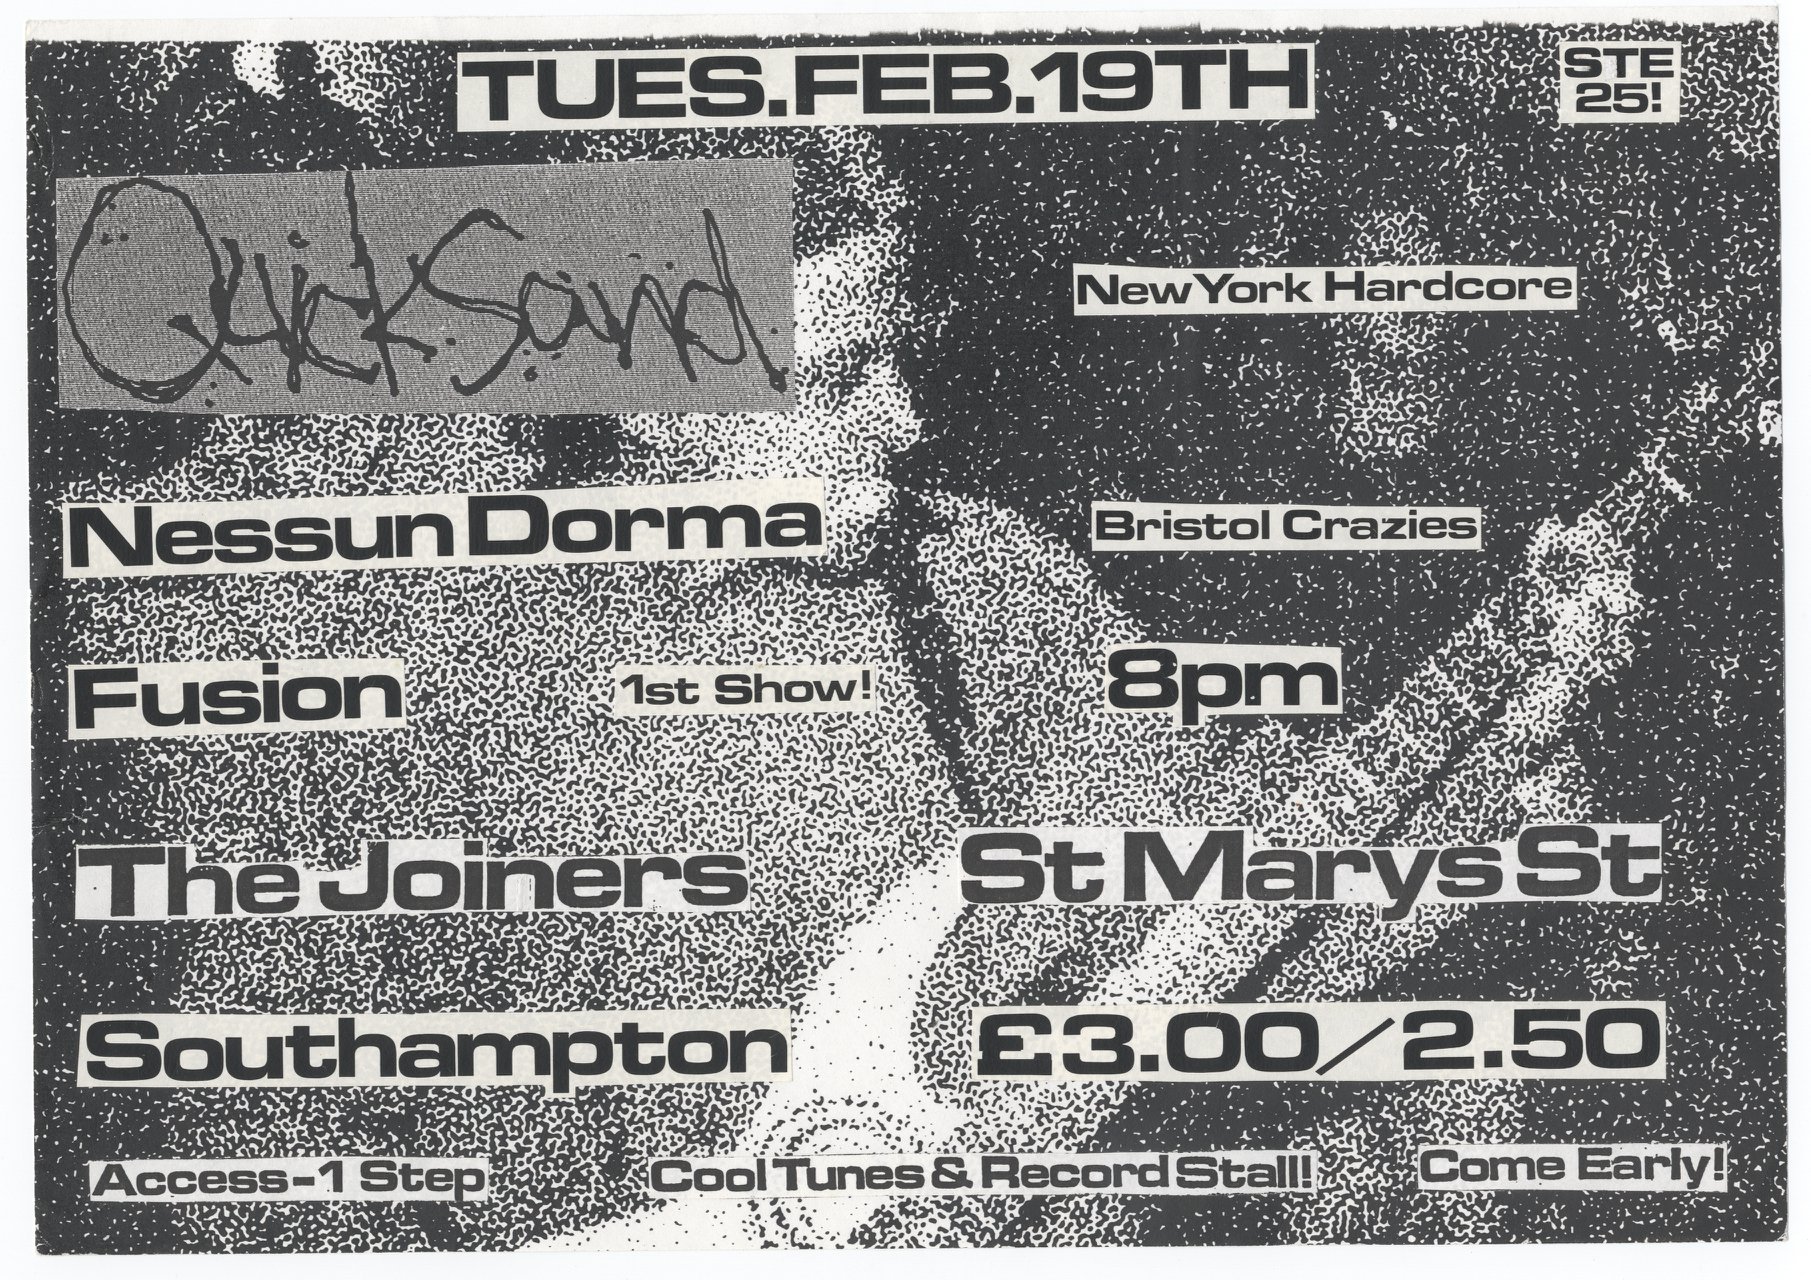 TUES.FEB.19TH
STE
25!
QuickSand
New York Hardcore
Nessun Dorma
Bristol Crazies
Fusion
1st Show!
8pm
The Joiners
St Marys St
Southampton
£3.00/2.50
Access-1 Step
Cool Tunes & Record Stall!
Come Early!